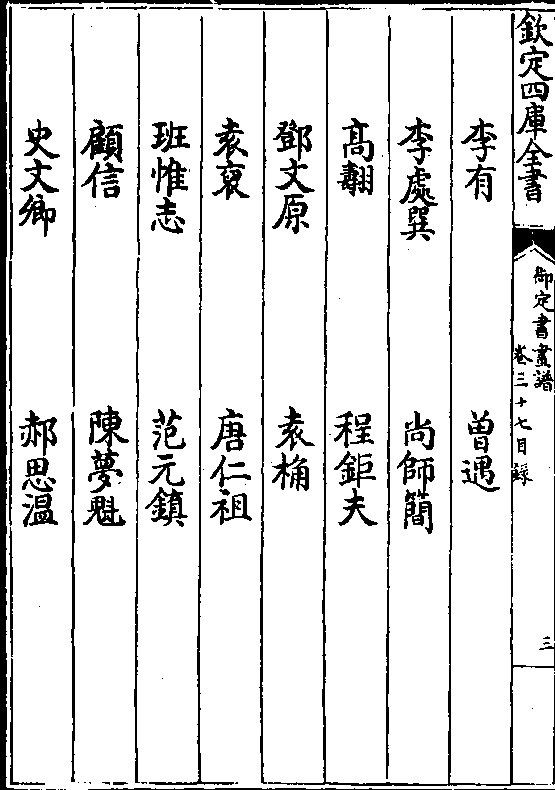 欽定四庫全書
御定書畫譜
卷三十七目錄
三
李有 曾遇
李處巽 尚師簡
高翿 程鉅夫
鄧文原 袁桷
袁裒 唐仁祖
班惟志 范元鎮
顧信 陳夢魁
史文卿 郝思温